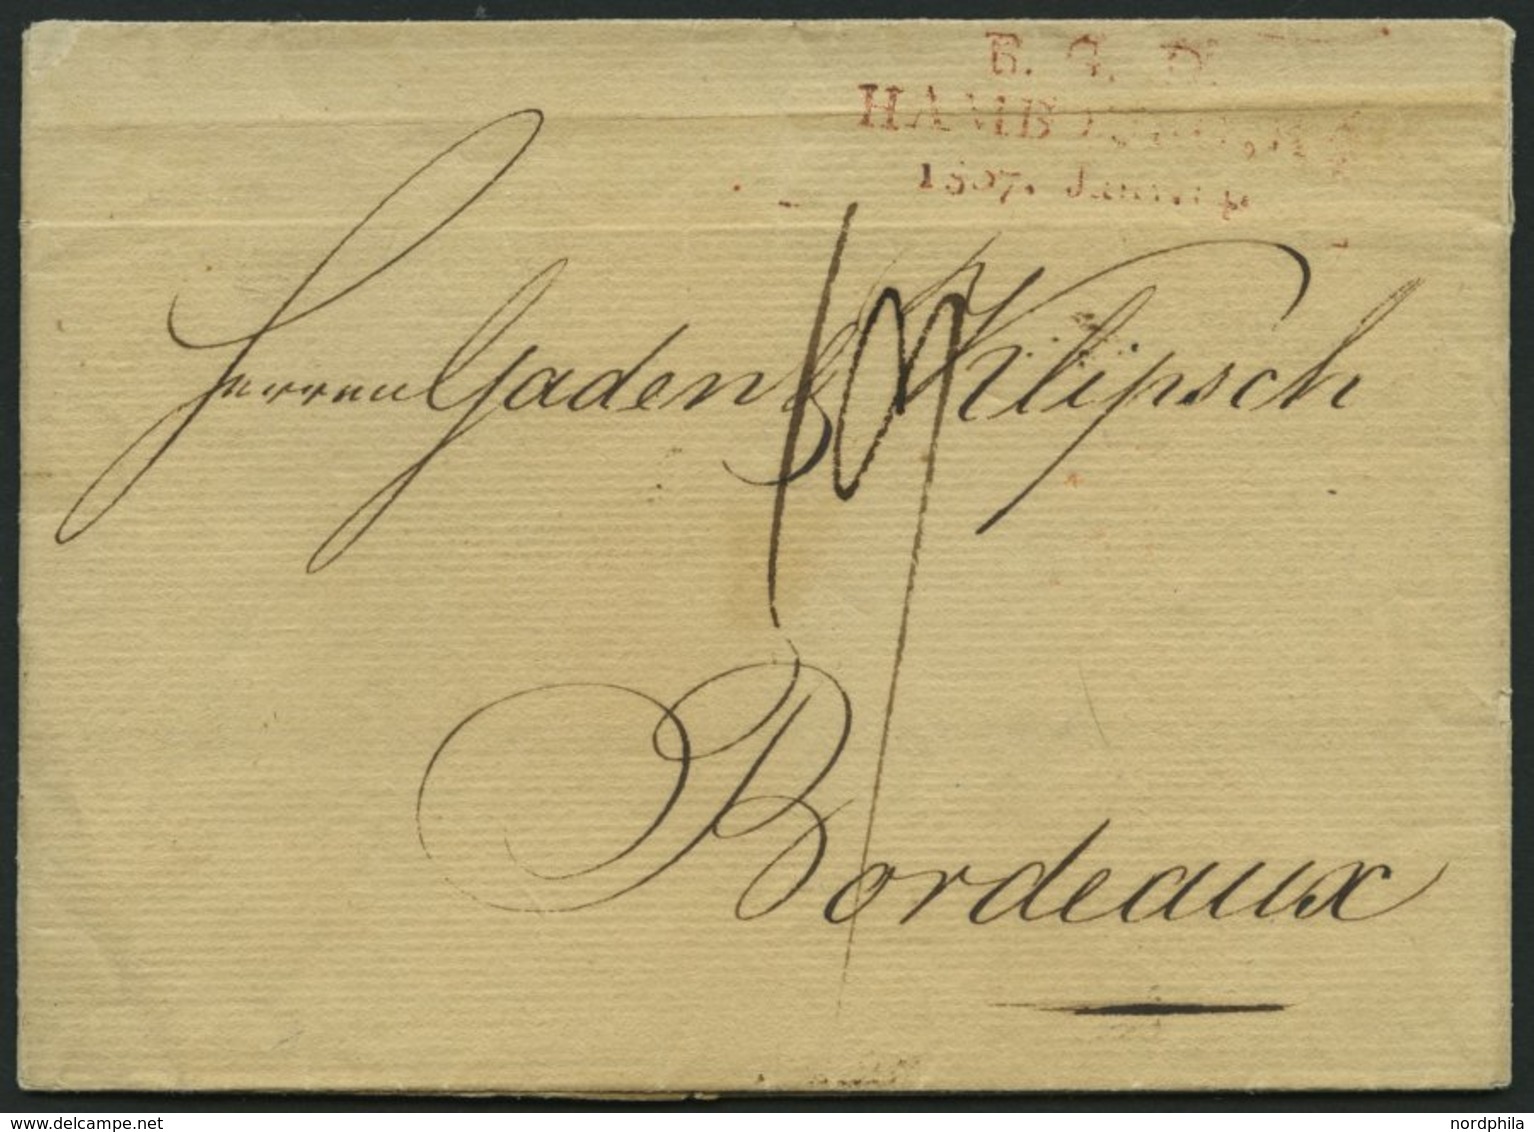 B. G. D.
HAMBOURG
1807. Janv. 14.
Herren Gaden & Klipsch
19
Bordeaux
www.delcampe.net
nordphila